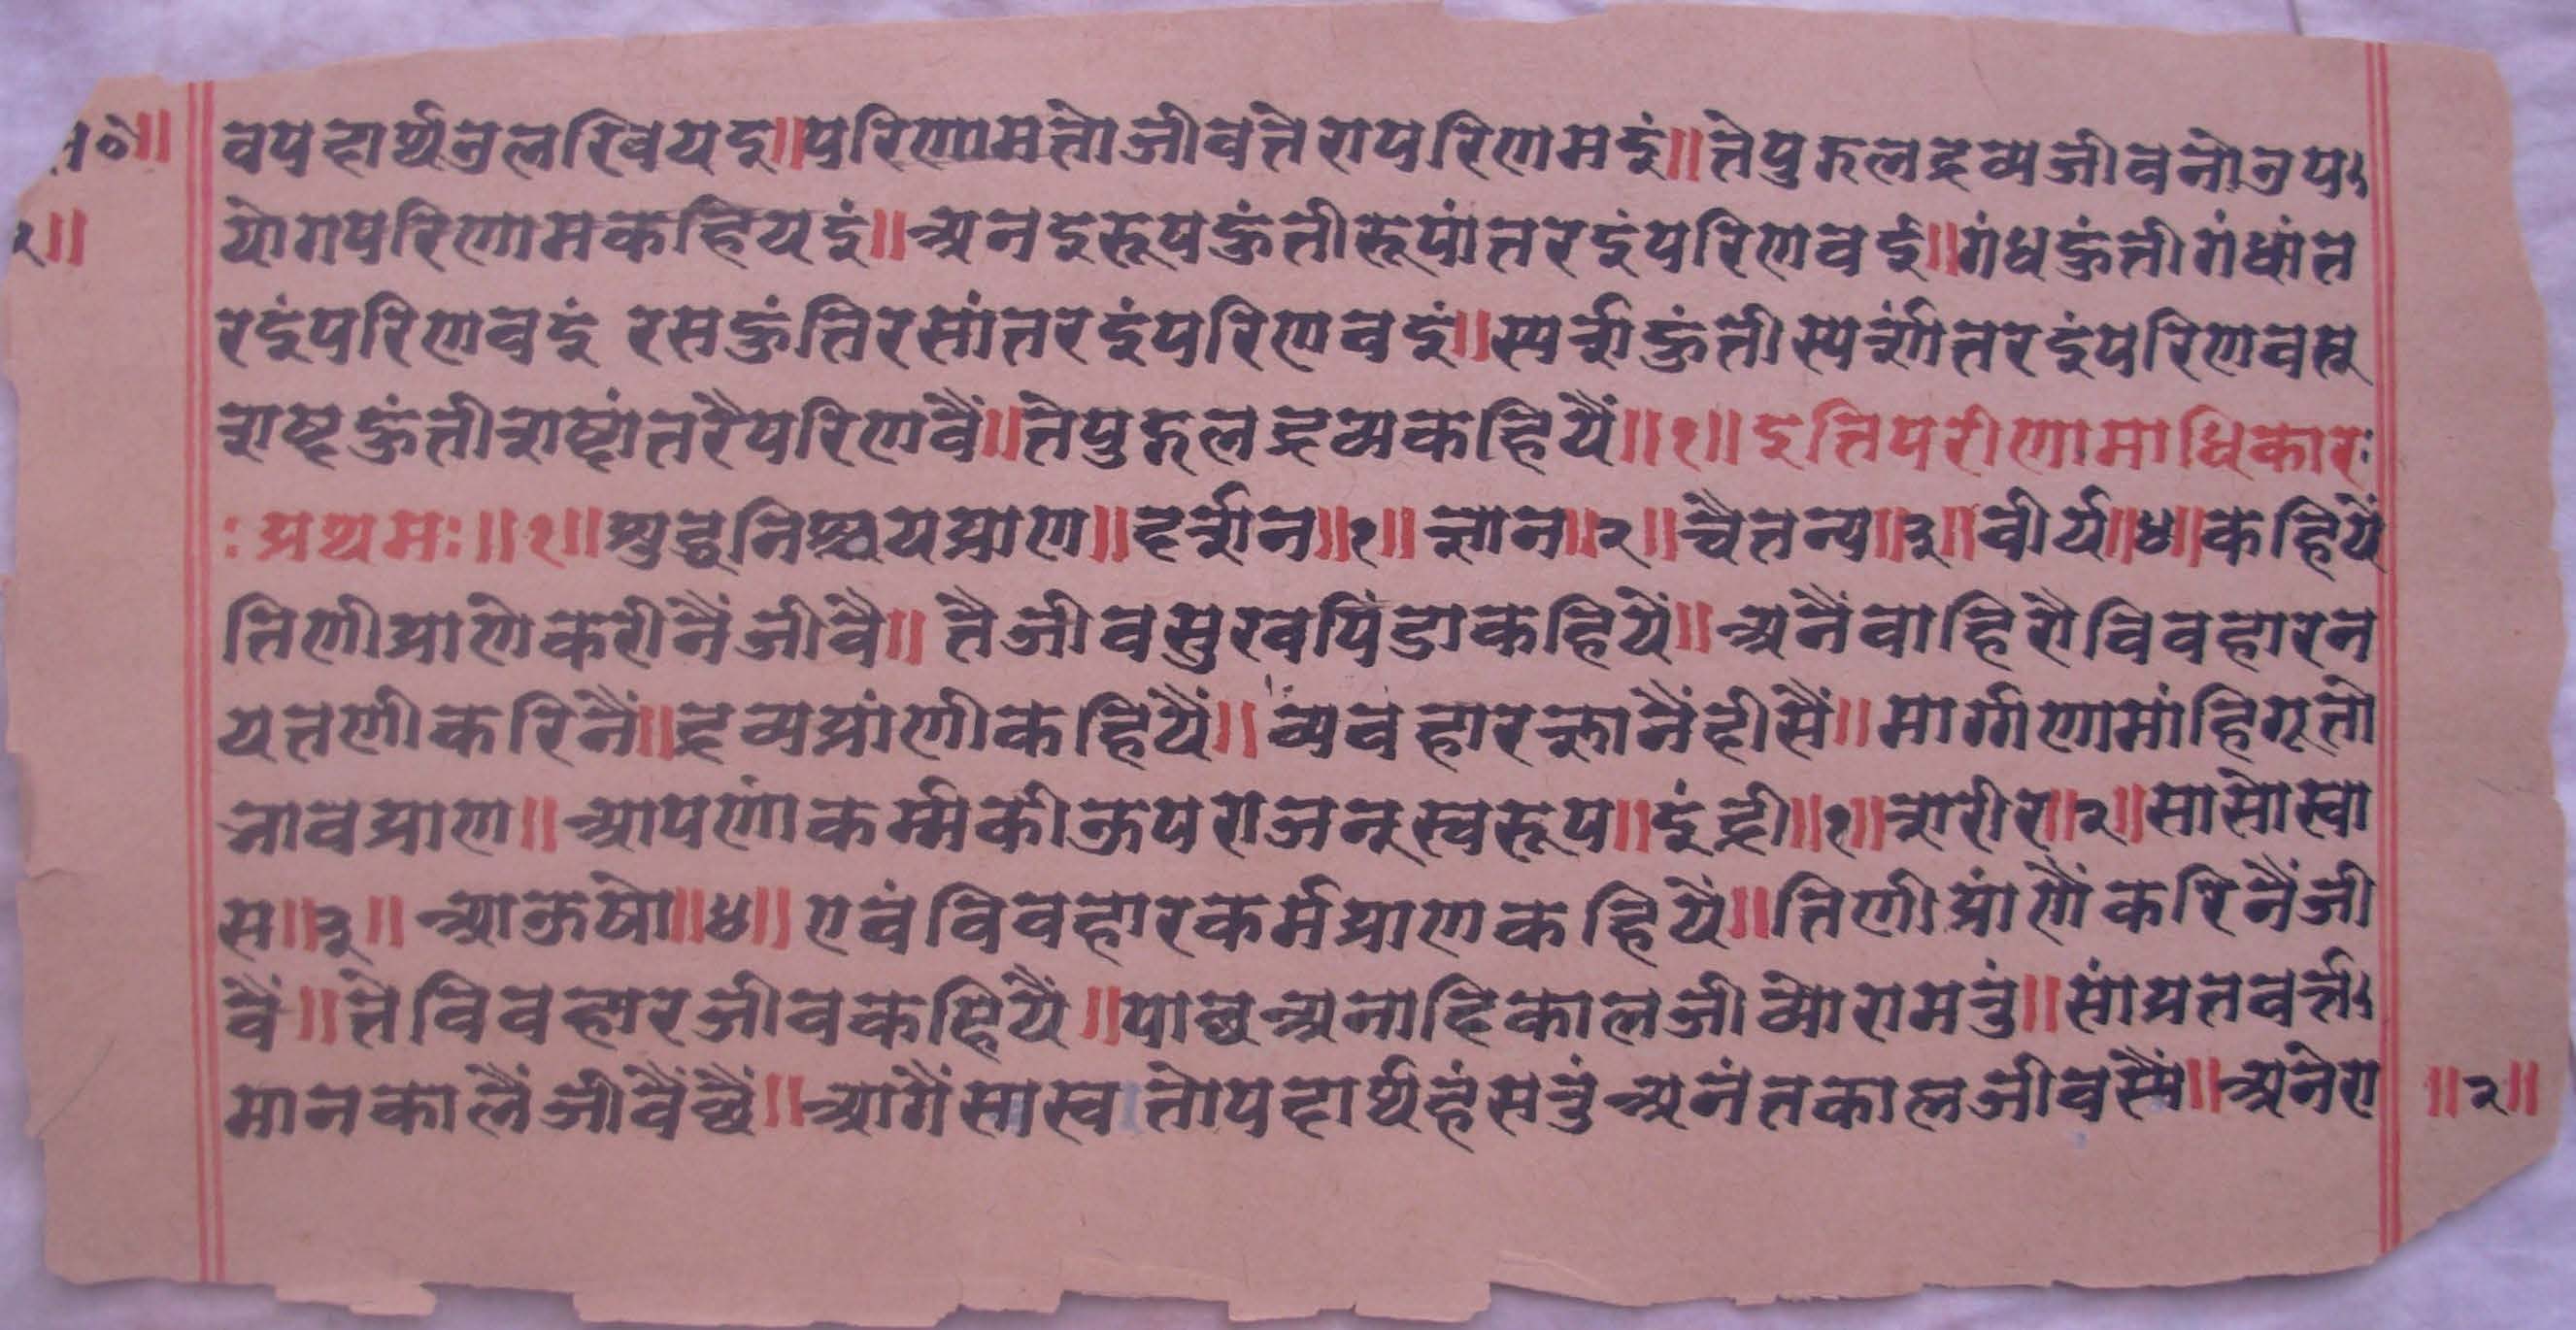 वपदार्थउलखियइ॥परिणामतोजीवतेरापरिणमइं॥तेपुद्गलद्रव्यजीवनोउप
योगपरिणामकहियइं॥अनइरूपहुंतीरूपांतरइंपरिणवई॥गंधहुंतीगंधांत
रइंपरिणवइं रसहुंतिरसांतरइंपरिणवइं॥स्पर्शहुंतीस्पर्शांतरइंपरिणव
शष्टहुंतीशष्टांतरैपरिणवैं॥तेपुद्गलद्रव्यकहियैं॥१॥इतिपरीणामाधिकारः
:प्रथमः॥१॥शुद्धनिश्चयप्राण॥दर्शन॥१॥ज्ञान॥२॥चैतन्य॥३॥वीर्य॥४॥कहियैं
तिणीप्राणेकरीनैंजीवै॥ तैजीवसुखपिंडाकहियें॥अनैंवाहिरौविवहारन
यतणीकरिनैं॥द्रव्यप्रांणीकहियैं॥ व्यवहारज्ञानैंदीसैं॥मार्गणामांहिगृतो
नावप्राण॥आपणांकर्म्मकीऊपराजनूस्वरूप॥इंद्री॥१॥शरीर॥२॥सासोस्वा
स॥३॥ आऊषो॥४॥ एवंविवहारकर्मप्राणकहियैं॥तिणीप्रांणैंकरिनैंजी
वैं॥तेविवहारजीवकहियैं॥पाछअनादिकालजीव्योरामउं॥सांप्रतवर्त्त
मानकालैंजीवैंछैं॥आगैंसास्वतोपदार्थहंसउंअनंतकालजीवस्यैं॥अनेरा
॥२॥